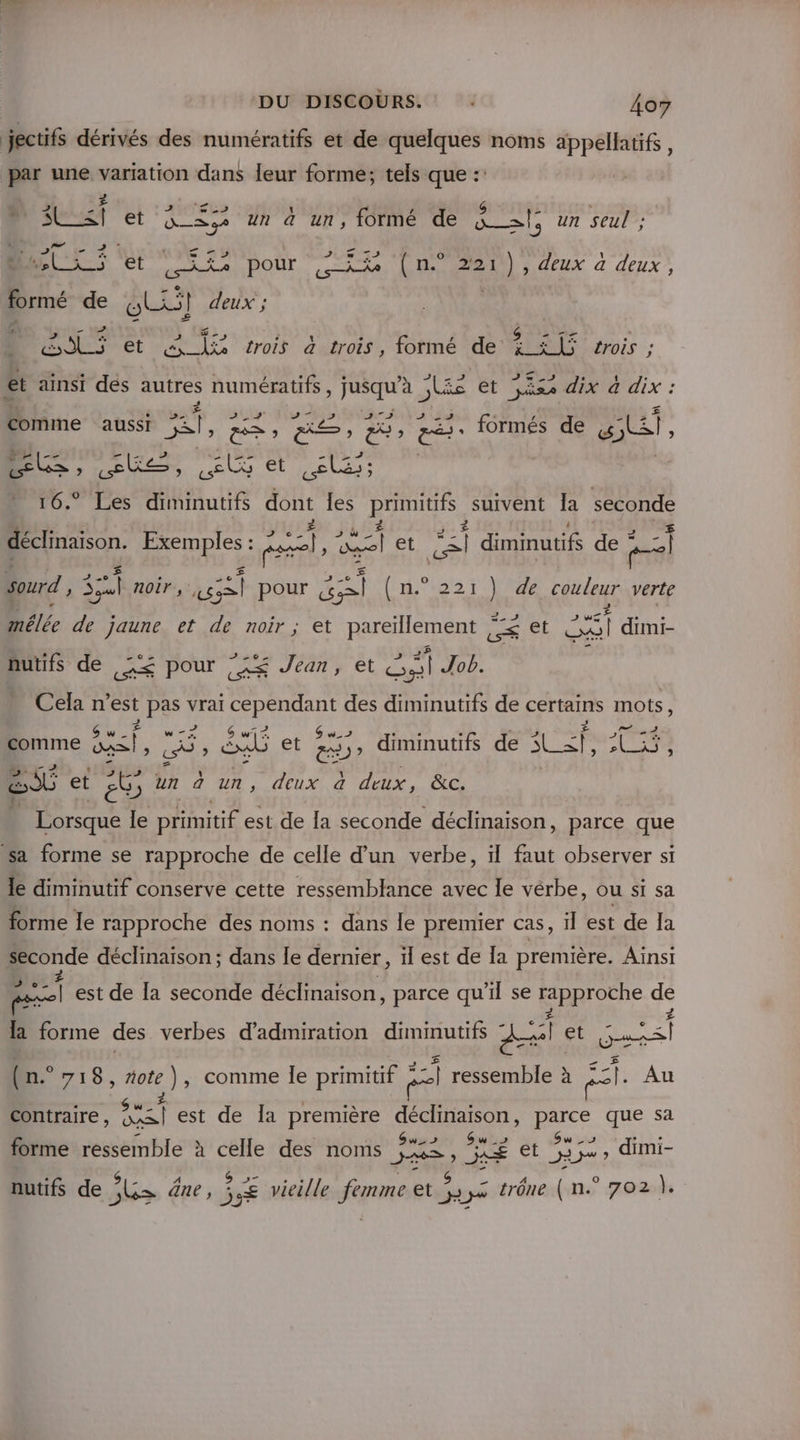 DU DISCOURS. 407
jectifs dérivés des numératifs et de quelques noms appellatifs,
par une variation dans leur forme; tels que :
أُحَادُ et مَوْحَدُ un à un, formé de وَاحِدٌ un seul;
ثُنَآءُ et مَثْنَى pour مَثْنَىُ (n.° 221), deux à deux,
formé de إِثْنَانِ deux;
ثُلَاثُ et مَثْلَثُ trois à trois, formé de ثَلَاثَةٌ trois;
et ainsi des autres numératifs, jusqu'à عُشَارُ et مَعْشَرُ dix à dix :
comme aussi أُخَرُ, جُمَعُ, كُتَعُ, بُتَعُ, بُصَعُ, formés de
16.° Les diminutifs dont les primitifs suivent la seconde
déclinaison. Exemples : أُصَيْمُ, et diminutifs de أَصَمُّ
sourd, أَسْوَدُ noir, أَحْوَى pour أَحْوَىُ (n.° 221) de couleur verte
mêlée de jaune et de noir; et pareillement et dimi-
nutifs de يَحْيَى pour يَحْيَىُ Jean, et أَيُّوبُ Job.
Cela n'est pas vrai cependant des diminutifs de certains mots,
comme et diminutifs de أُحَادُ, ثُنَآءُ,
ثُلَاثُ et رُبَاعُ un à un, deux à deux, &c.
Lorsque le primitif est de la seconde déclinaison, parce que
sa forme se rapproche de celle d'un verbe, il faut observer si
le diminutif conserve cette ressemblance avec le verbe, ou si sa
forme le rapproche des noms : dans le premier cas, il est de la
seconde déclinaison; dans le dernier, il est de la première. Ainsi
أُصَيْمُ est de la seconde déclinaison, parce qu'il se rapproche de
la forme des verbes d'admiration diminutifs et
(n.° 718, note), comme le primitif أَصَمُّ ressemble à أَصَمَّ. Au
contraire, est de la première déclinaison, parce que sa
forme ressemble à celle des noms et dimi-
nutifs de حِمَارٌ âne, عَجُوزٌ vieille femme et سَرِيرٌ trône (n.° 702).